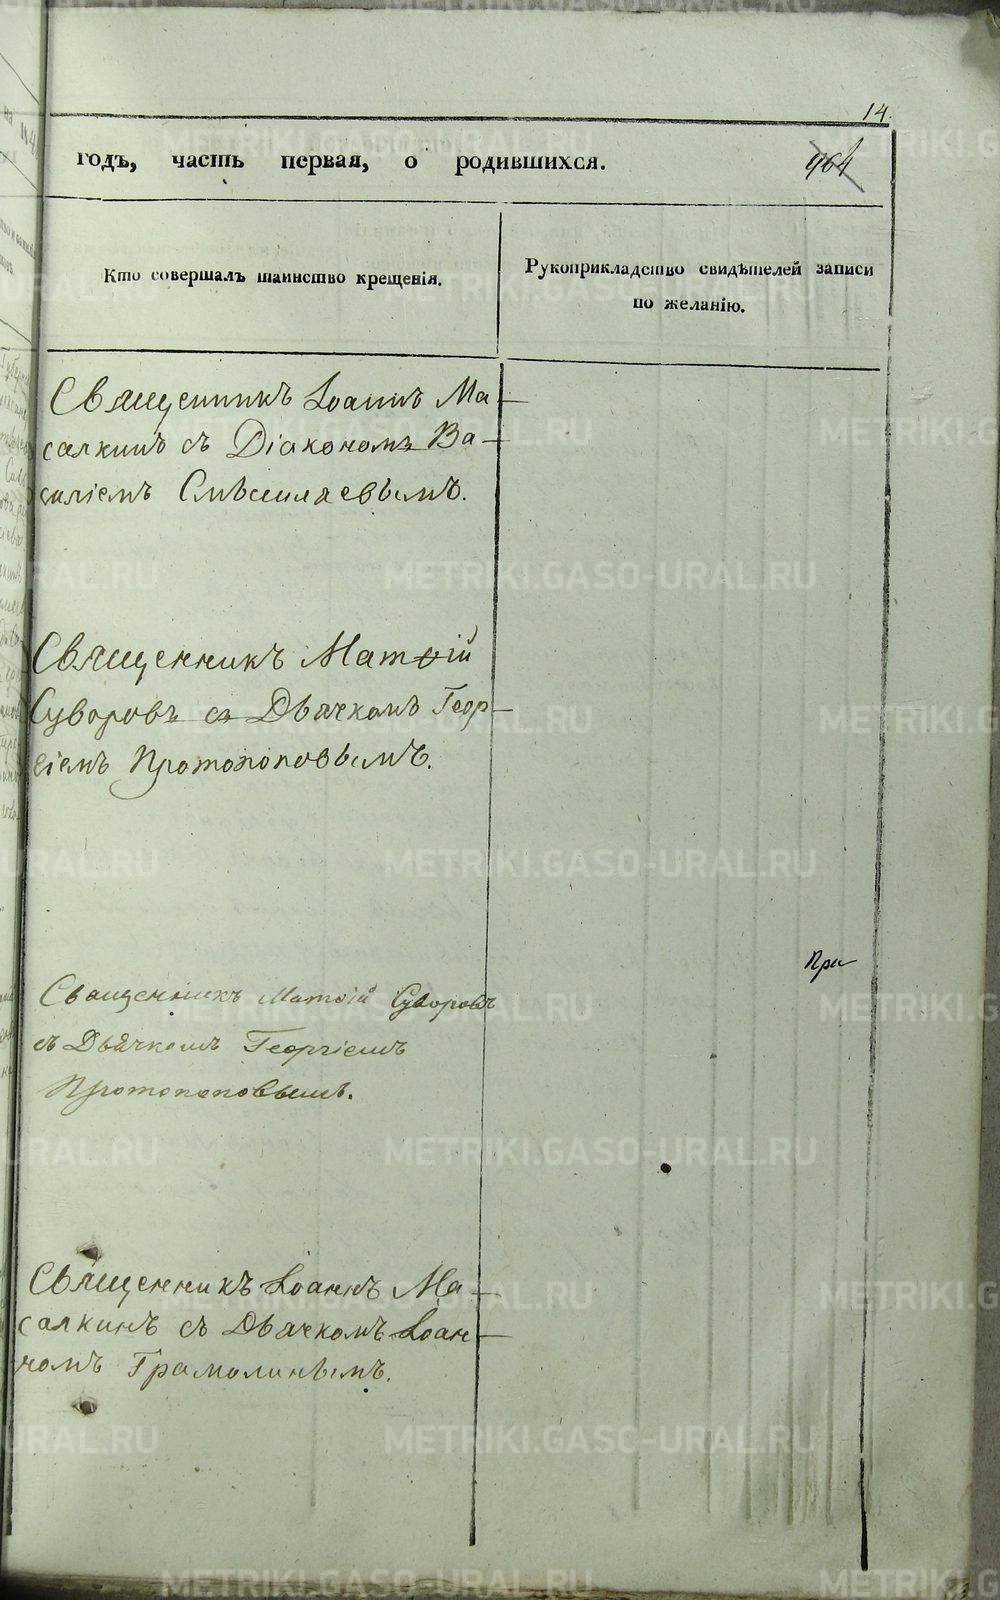 14.
годъ, часть первая, о родившихся.
964
Кто совершалъ таинство крещенія.
Рукоприкладство свидѣтелей записи
по желанію.
Священникъ Іоаннъ Ма-
салкинъ съ Діакономъ Ва-
силіемъ Смышляевымъ.
Священникъ Матѳій
Суворовъ съ Дьячкомъ Геор-
гіемъ Протопоповымъ.
При
Священникъ Матѳій Суворовъ
съ Дьячкомъ Георгіемъ
Протопоповымъ.
Священникъ Іоаннъ Ма-
салкинъ съ Дьячкомъ Іоан-
номъ Грамолинымъ.
METRIKI.GASO-URAL.RU